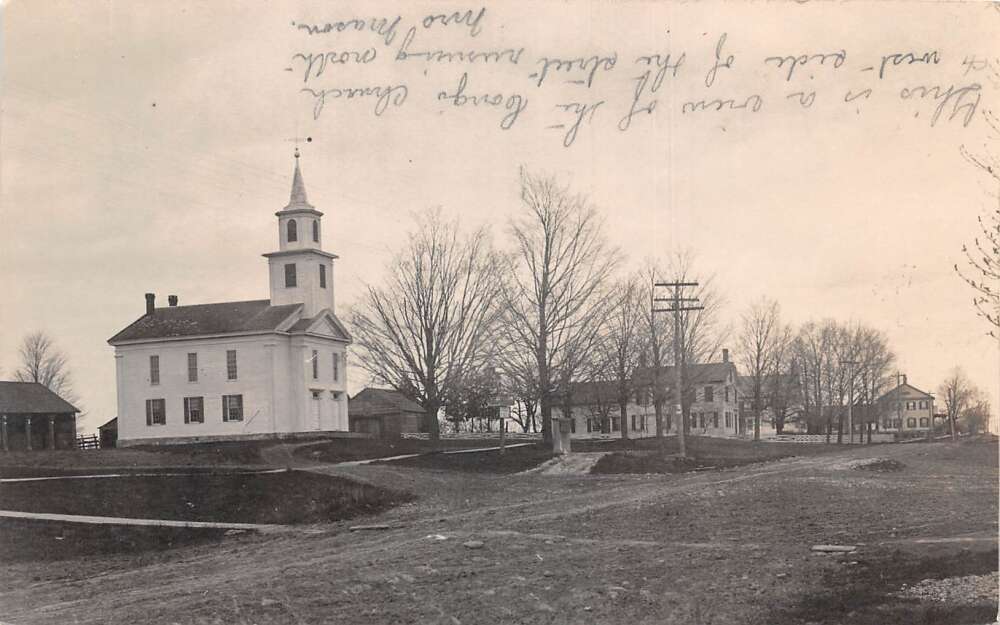 This is a view of the Cong's Church
& west side of the street running north
Mrs Mason.